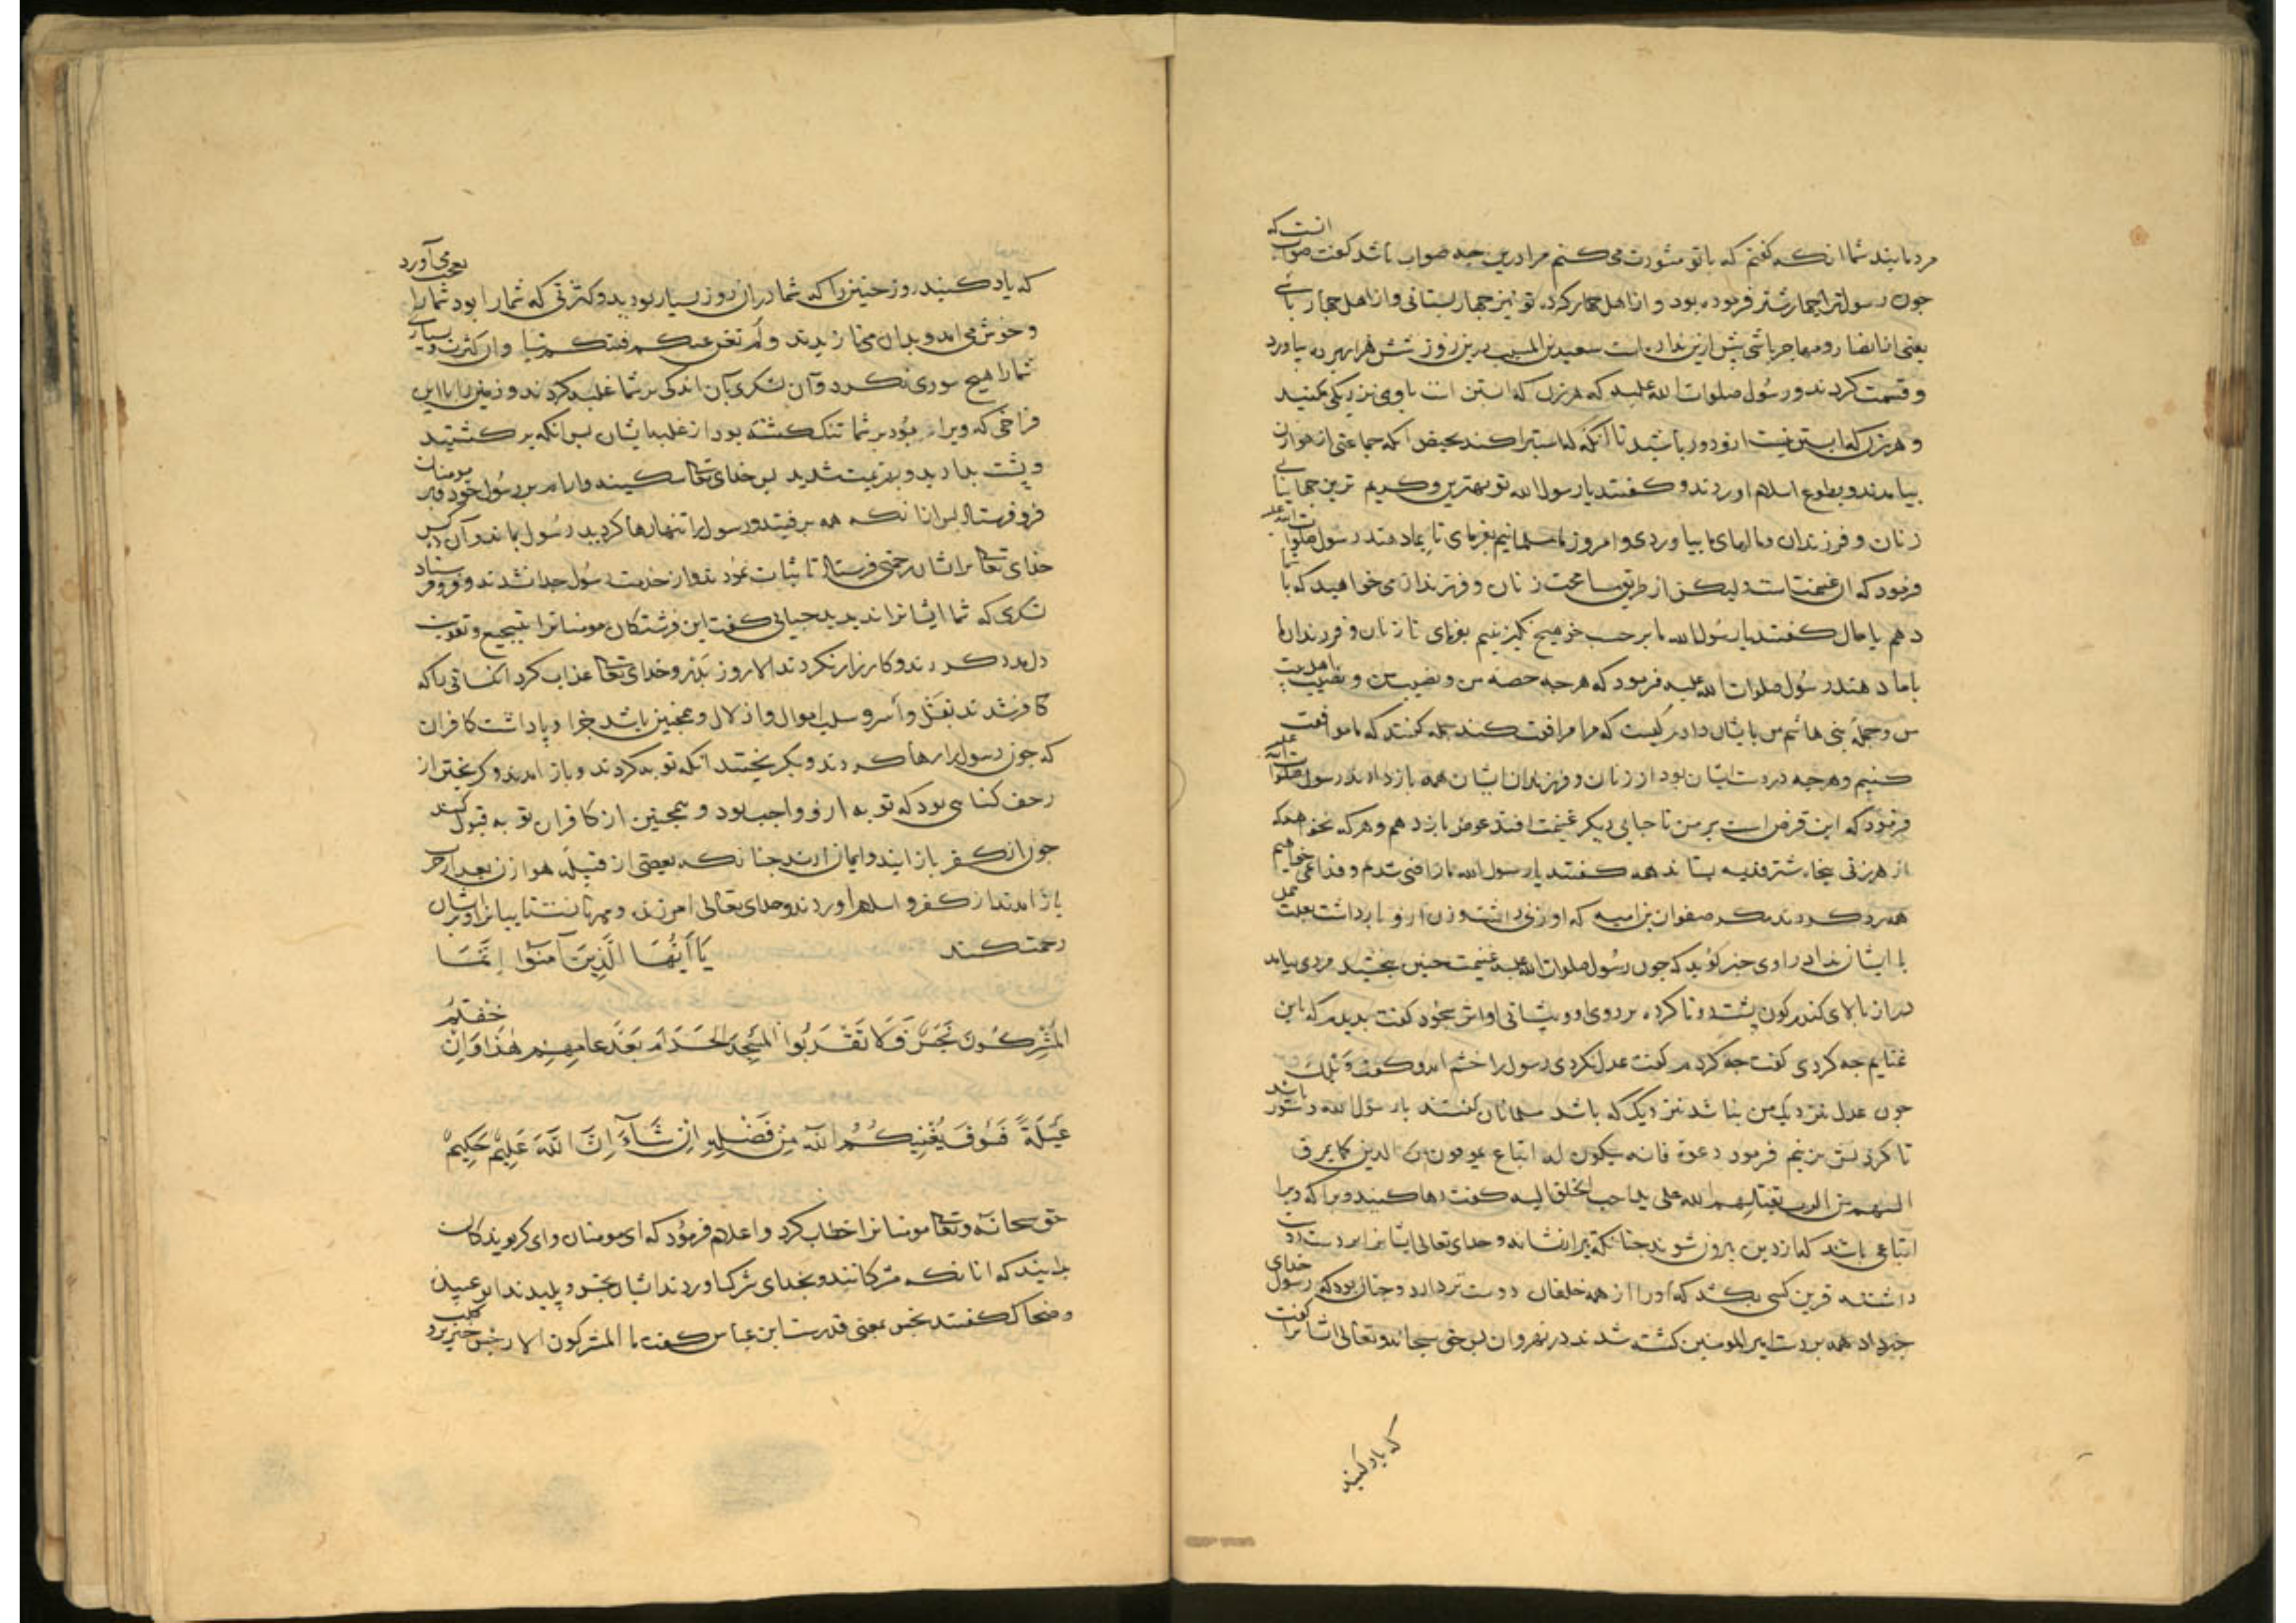 مردمانید شما انکه گفتم که با تو مشورت می کنم مرا درین چه صواب باشد گفت صواب انست که
چون رسول ترا چهار شتر فرموده بود و از اهل کرد تو نیز چهار بستانی و از اهل باشی
یعنی از انصار و مهاجر باشی پیش ازین ندارند سعید بن المسیب درین روز شش هزار برده بیاورد
و قسمت کردند و رسول صلوات الله علیه که هر زن که ابستن است با وی نزدیکی مکنید
و هر زن که ابستن نیست ازو دور باشید تا آنگه که استبرا کند بحیض آنگه جماعتی از هوازن
بیامدند و بطوع اسلام اوردند و گفتند یا رسول الله تو بهترین و کریم ترین جهانیانی
زنان و فرزندان و مالهای ما بیاوردی و امروز ما مسلمانیم بفرمای تا بماد هند رسول صلوات الله علیه
فرمود که ان غنیمتست لیکن از طریق زنان و فرزندان می خواهید که با شما
دهم یا مال گفتند یا رسول الله ما بر حسب خود هیچ نگزینیم بفرمای تا زنان و فرزندان ما
با ما دهند رسول صلوات الله علیه فرمود که هر چه حصه من و نصیب من و نصیب اهل بیت
من و جمله بنی هاشم من بایشان دادم کیست که مرا مرافقت کند جمله گفتند که ما موافقت
کنیم و هر چه در دست ایشان بود از زنان و فرزندان ایشان همه باز دادند رسول صلوات الله علیه
فرمود که این قرض است بر من تا جایی دیگر غنیمت افتد عوض باز دهم و هر که نخواهد که
از هر زنی پنجاه شتر فدیه بستاند همه گفتند یا رسول الله ما راضی شدم و فدا نمی خواهیم
همه رد کردند مگر صفوان بن امیه که او زنی داشت و زن ازو بار داشت بعلت حمل
با ایشان نداد راوی خبر گوید که چون رسول صلوات الله علیه غنیمت حنین ببخشید مردی بیامد
دراز بالای گندم گون پشت دوتا کرده بر روی او و پیشانی او اثر سجود گفت بدیدم که باین
غنایم چه کردی گفت چه کردم گفت عدل نکردی رسول را خشم امد و گفت ویلك
چون عدل نزدیك من نباشد نزدیك که باشد مسلمانان گفتند یا رسول الله دستور باشد
تا گردنش بزنیم فرمود دعوه فانه یکون له اتباع یمرقون من الدین کما یمرق
السهم من الرمیه یقتلهم الله علی ید احب الخلق الیه گفت رها کنید ویرا که ویرا
اتباعی باشد که از دین بیرون شوند چنانکه تیر از نشانه و خدای تعالی ایشانرا بر دست دوست
داشته ترین کسی بکشد که او را از همه خلقان دوست تر دارد و چنان بود که رسول خدای
خبر داد همه بر دست امیر المومنین کشته شدند در نهروان پس حق سبحانه و تعالی ایشانرا گفت
که یاد کنید
که یاد کنید روز حنین را که شما دران روز بسیار بودید و کثرتی که شما را بود شما را بعجب می آورد
و خوش می امد و بدان می نازیدند و لم تغن عنکم فئتکم شیا و ان کثرت و بسیاری
شما را هیچ سودی نکرد و آن لشکری بآن اندکی بر شما غلبه کردند و زمین با این
فراخی که ویرا بود بر شما تنگ گشته بود از غلبه ایشان پس انکه بر گشتید
و پشت بدادید و بهزیمت شدید پس خدای تعالی سکینه و ارام بر رسول خود و بر مومنان
فرو فرستاد پس انانکه همه برفتند و رسول را تنها رها کردید رسول بماند و آن کس
خدای تعالی بر ایشان رحمتی فرستاد تا ثبات نمودند و از خدمت رسول جدا نشدند و فرو فرستاد
لشکری که شما ایشانرا ندیدید جبایی گفت این فرشتگان مومنانرا بتشجیع و تقویت
دل مدد کردند و کارزار نکردند الا روز بدر و خدای تعالی عذاب کرد انکسانی را که
کافر شدند بقتل و أسر و سلب اموال و اذلال و همچنین باشد جزا و پاداشت کافران
که چون رسول را رها کردند و بگریختند آنگه توبه کردند و باز امدند و گریختن از
زحف گناهی بود که توبه ازو واجب بود و همچنین از کافران توبه قبول کند
چون از کفر باز ایند و ایمان ارند چنانکه بعضی از قبیله هوازن بعد از حرب
باز امدند از کفر و اسلام آوردند و خدای تعالی امرزنده و مهربانست تایبانرا و بر ایشان
رحمت کند یَا أَیُّهَا الَّذِینَ آمَنُوا إِنَّمَا
الْمُشْرِكُونَ نَجَسٌ فَلَا تَقْرَبُوا الْمَسْجِدَ الْحَرَامَ بَعْدَ عَامِهِمْ هٰذَا وَإِنْ خِفْتُمْ
عَیْلَةً فَسَوْفَ یُغْنِیكُمُ اللّٰهُ مِنْ فَضْلِهِ إِنْ شَآءَ إِنَّ اللّٰهَ عَلِیمٌ حَكِیمٌ
حق سبحانه و تعالی مومنانرا خطاب کرد و اعلام فرمود که ای مومنان و ای گرویدگان
بدانید که انانکه مشرکانند و بخدای شرك اوردند ایشان نجس و پلیدند ابو عبیده
و ضحاك گفتند نجس بمعنی قذرست ابن عباس گفت ما المشرکون الا رجس خنزیر او کلب